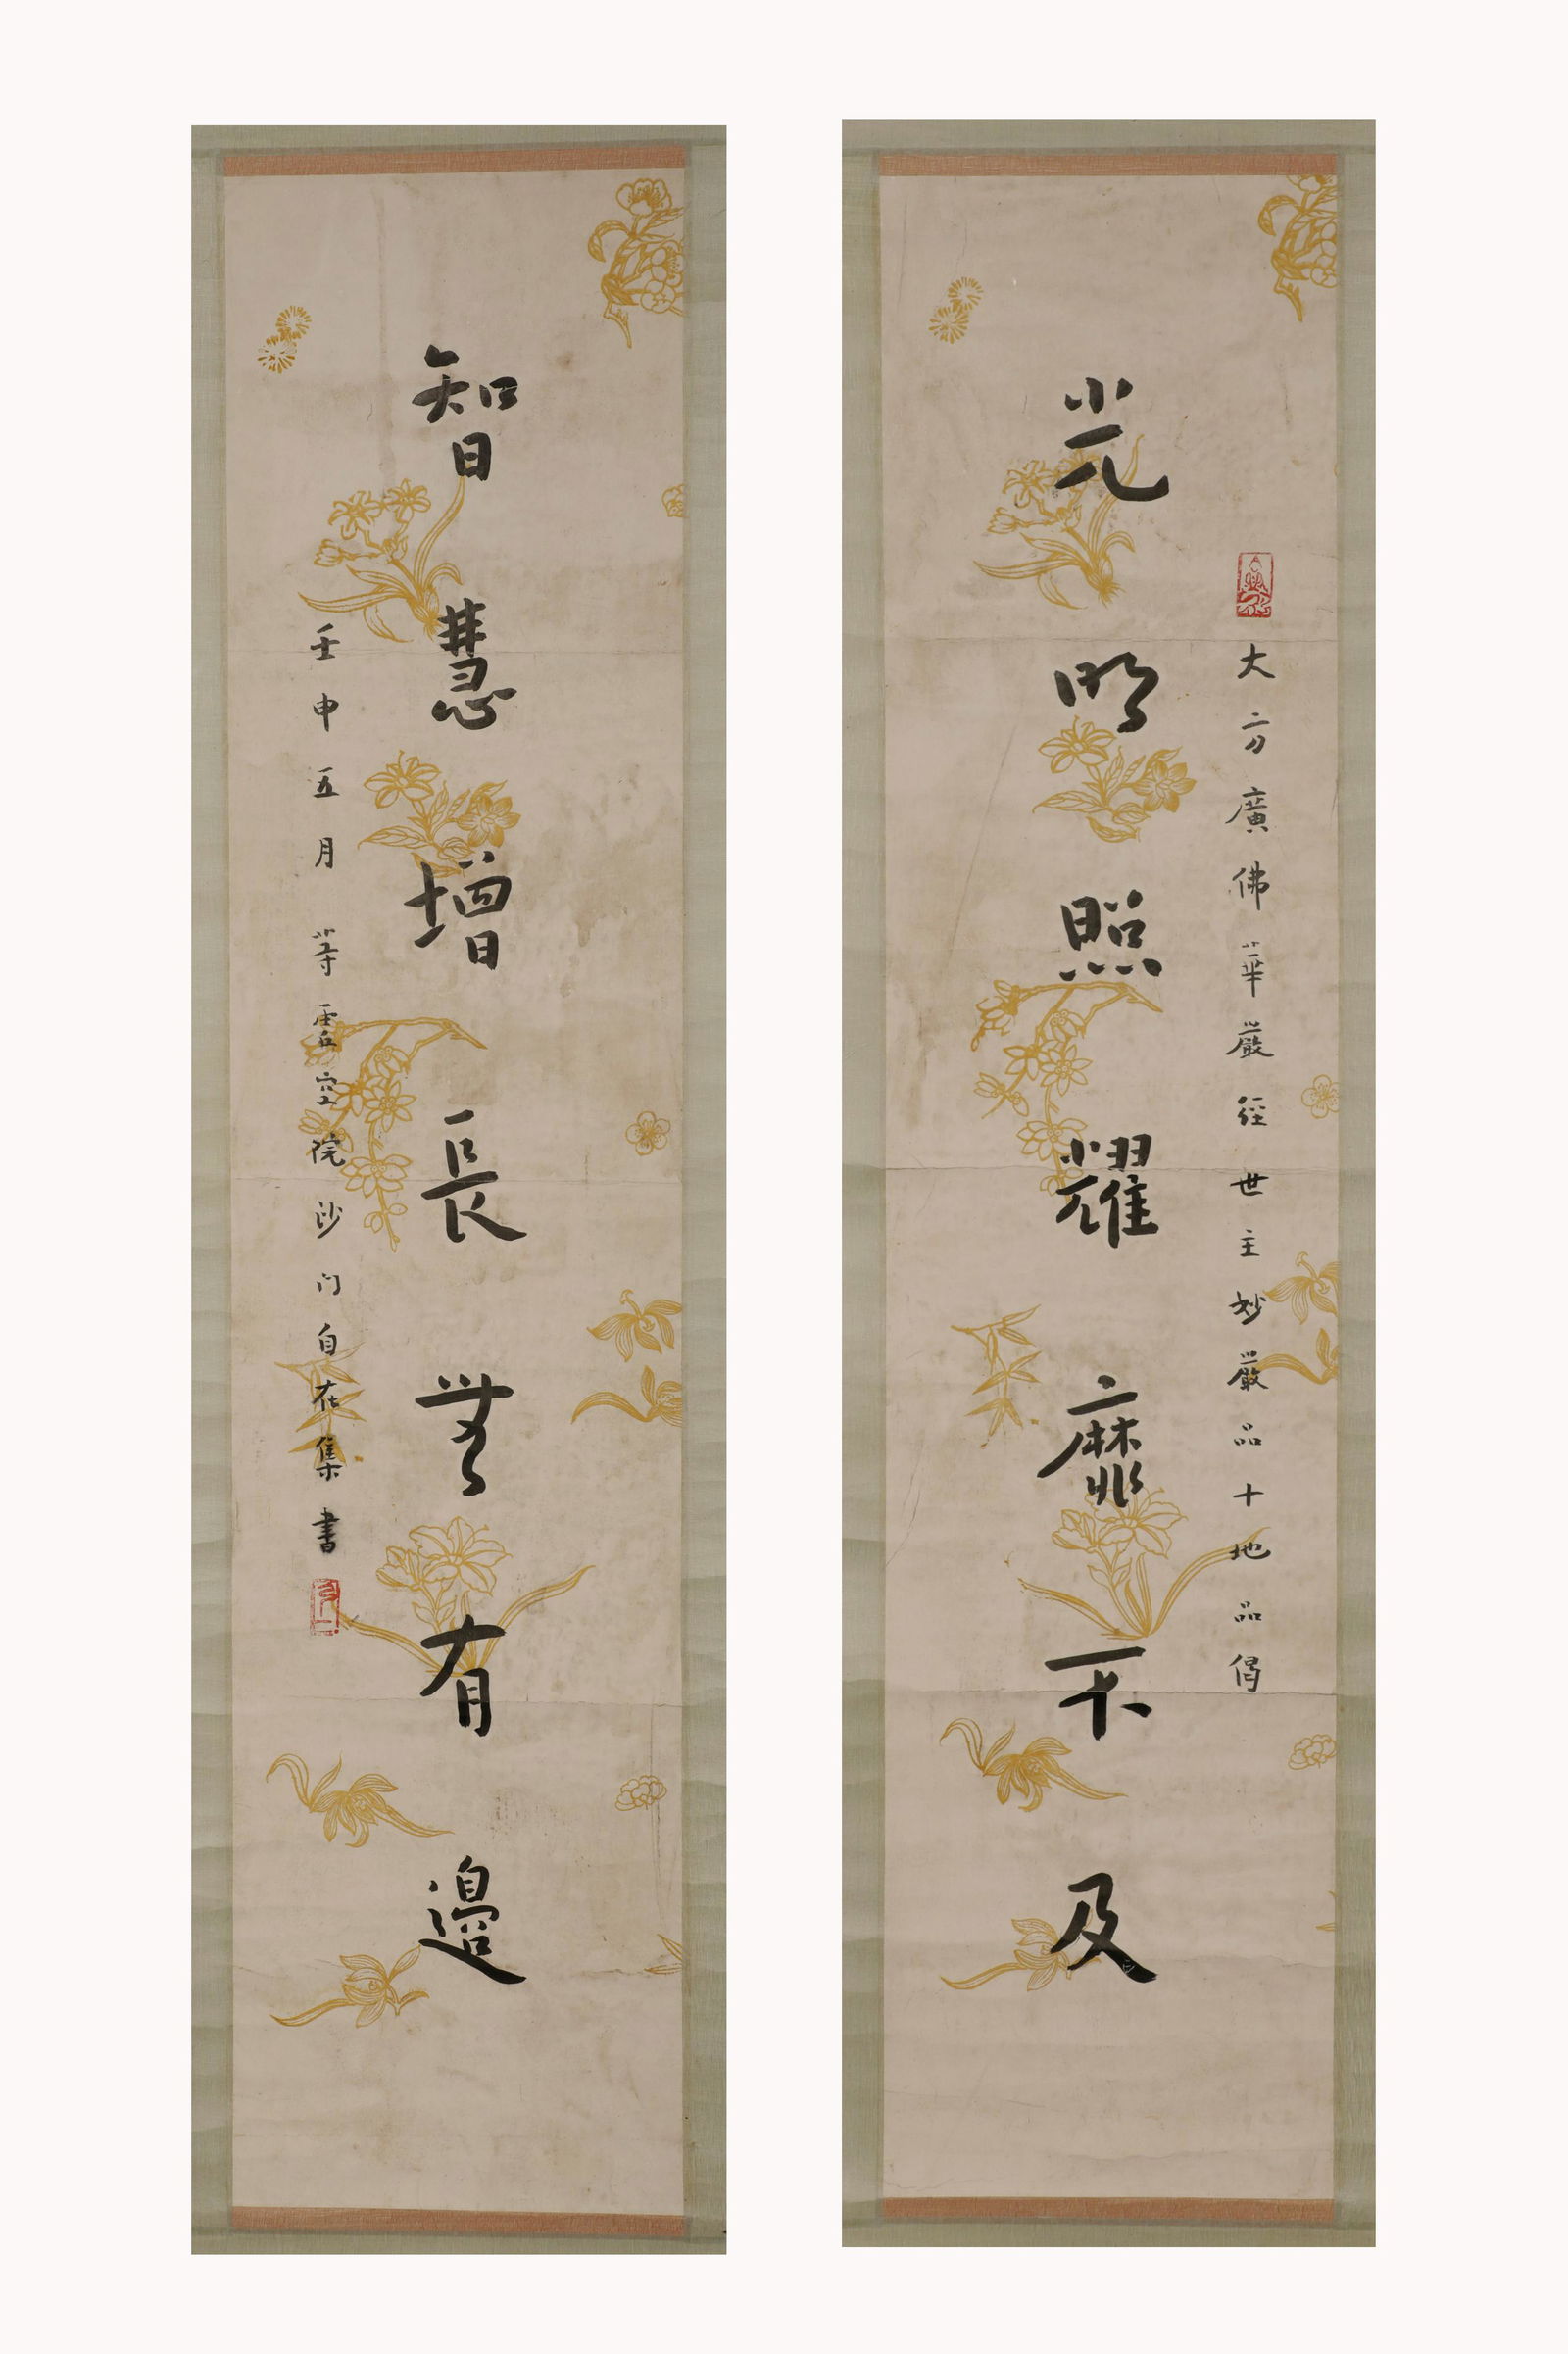 大方廣佛華嚴經世主妙嚴品十地品偈
光明照耀靡不及
智慧增長無有邊
壬申五月 等雲空院沙门自在集書